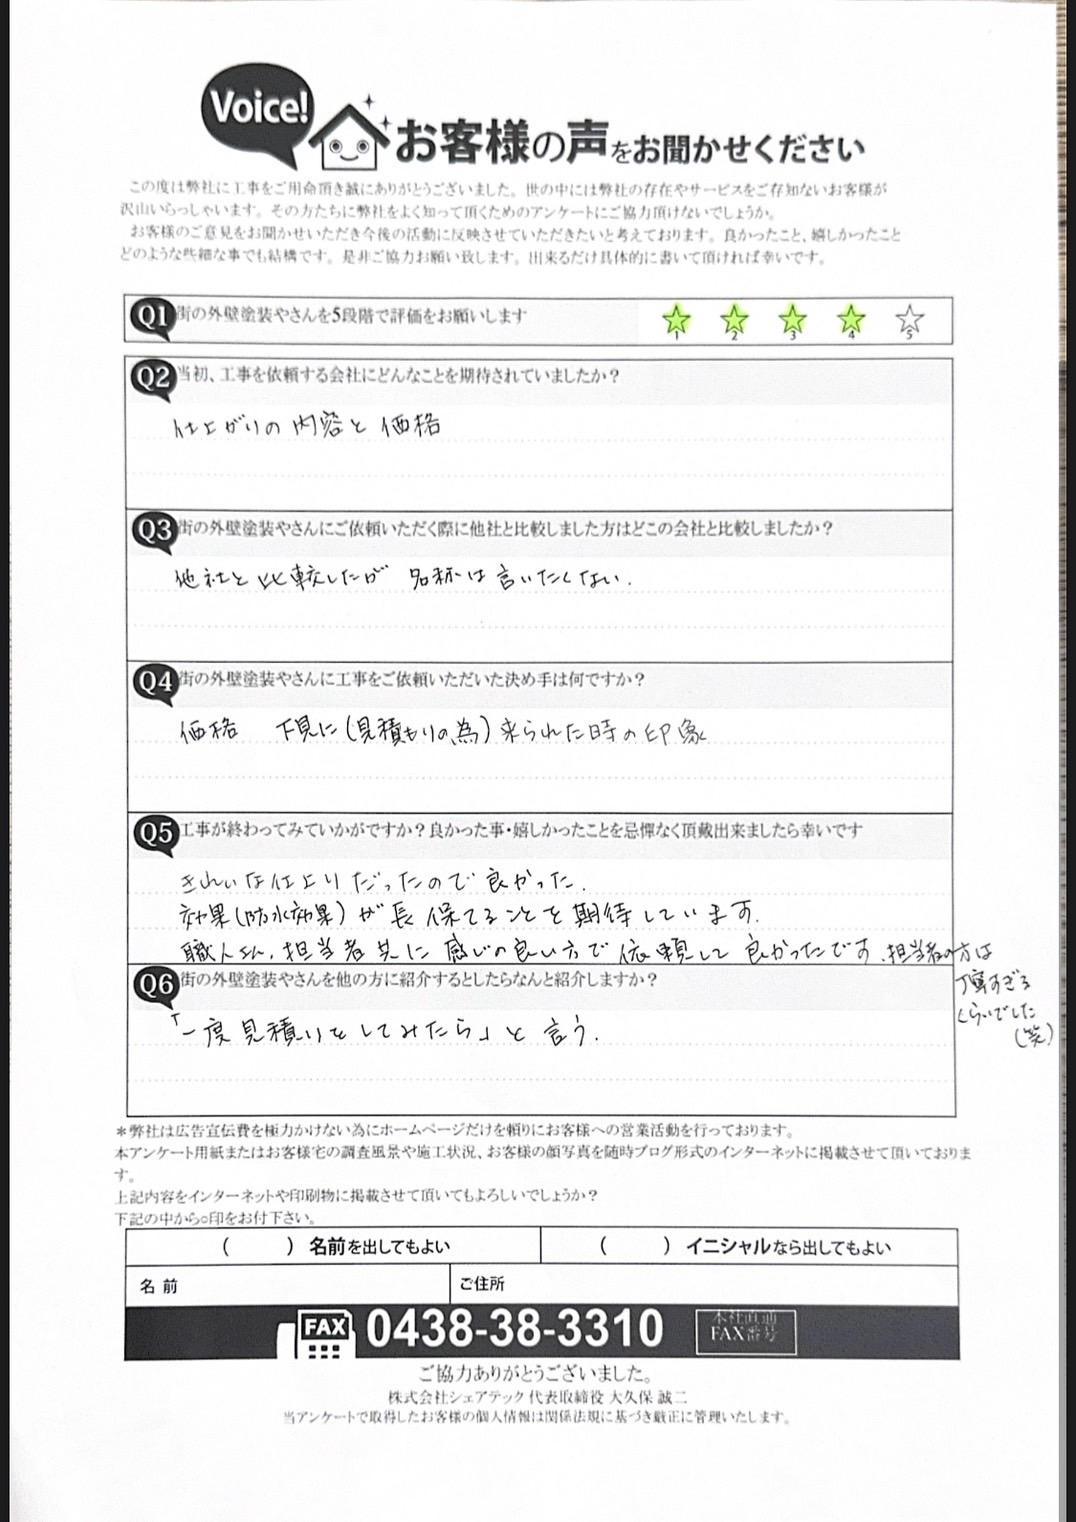 Voice!
お客様の声をお聞かせください
この度は弊社に工事をご用命頂き誠にありがとうございました。世の中には弊社の存在やサービスをご存知ないお客様が
沢山いらっしゃいます。その方たちに弊社をよく知って頂くためのアンケートにご協力頂けないでしょうか。
お客様のご意見をお聞かせいただき今後の活動に反映させていただきたいと考えております。良かったこと、嬉しかったこと
どのような些細な事でも結構です。是非ご協力お願い致します。出来るだけ具体的に書いて頂ければ幸いです。
Q1 街の外壁塗装やさんを5段階で評価をお願いします
1 2 3 4 5
Q2 当初、工事を依頼する会社にどんなことを期待されていましたか?
仕上がりの内容と価格
Q3 街の外壁塗装やさんにご依頼いただく際に他社と比較しました方はどこの会社と比較しましたか?
他社と比較したが 名称は言いたくない.
Q4 街の外壁塗装やさんに工事をご依頼いただいた決め手は何ですか?
価格 下見に(見積もりの為)来られた時の印象
Q5 工事が終わってみていかがですか?良かった事・嬉しかったことを忌憚なく頂戴出来ましたら幸いです
きれいな仕上りだったので良かった.
効果(防水効果)が長保てることを期待しています.
職人さん、担当者共に感じの良い方で依頼して良かったです.担当者の方は
丁寧すぎる
くらいでした
(笑)
Q6 街の外壁塗装やさんを他の方に紹介するとしたらなんと紹介しますか?
「一度見積りをしてみたら」と言う.
*弊社は広告宣伝費を極力かけない為にホームページだけを頼りにお客様への営業活動を行っております。
本アンケート用紙またはお客様宅の調査風景や施工状況、お客様の顔写真を随時ブログ形式のインターネットに掲載させて頂いておりま
す。
上記内容をインターネットや印刷物に掲載させて頂いてもよろしいでしょうか?
下記の中から○印をお付下さい。
( ) 名前を出してもよい ( ) イニシャルなら出してもよい
名前 ご住所
FAX 0438-38-3310 本社直通
FAX番号
ご協力ありがとうございました。
株式会社シェアテック 代表取締役 大久保 誠二
当アンケートで取得したお客様の個人情報は関係法規に基づき厳正に管理いたします。